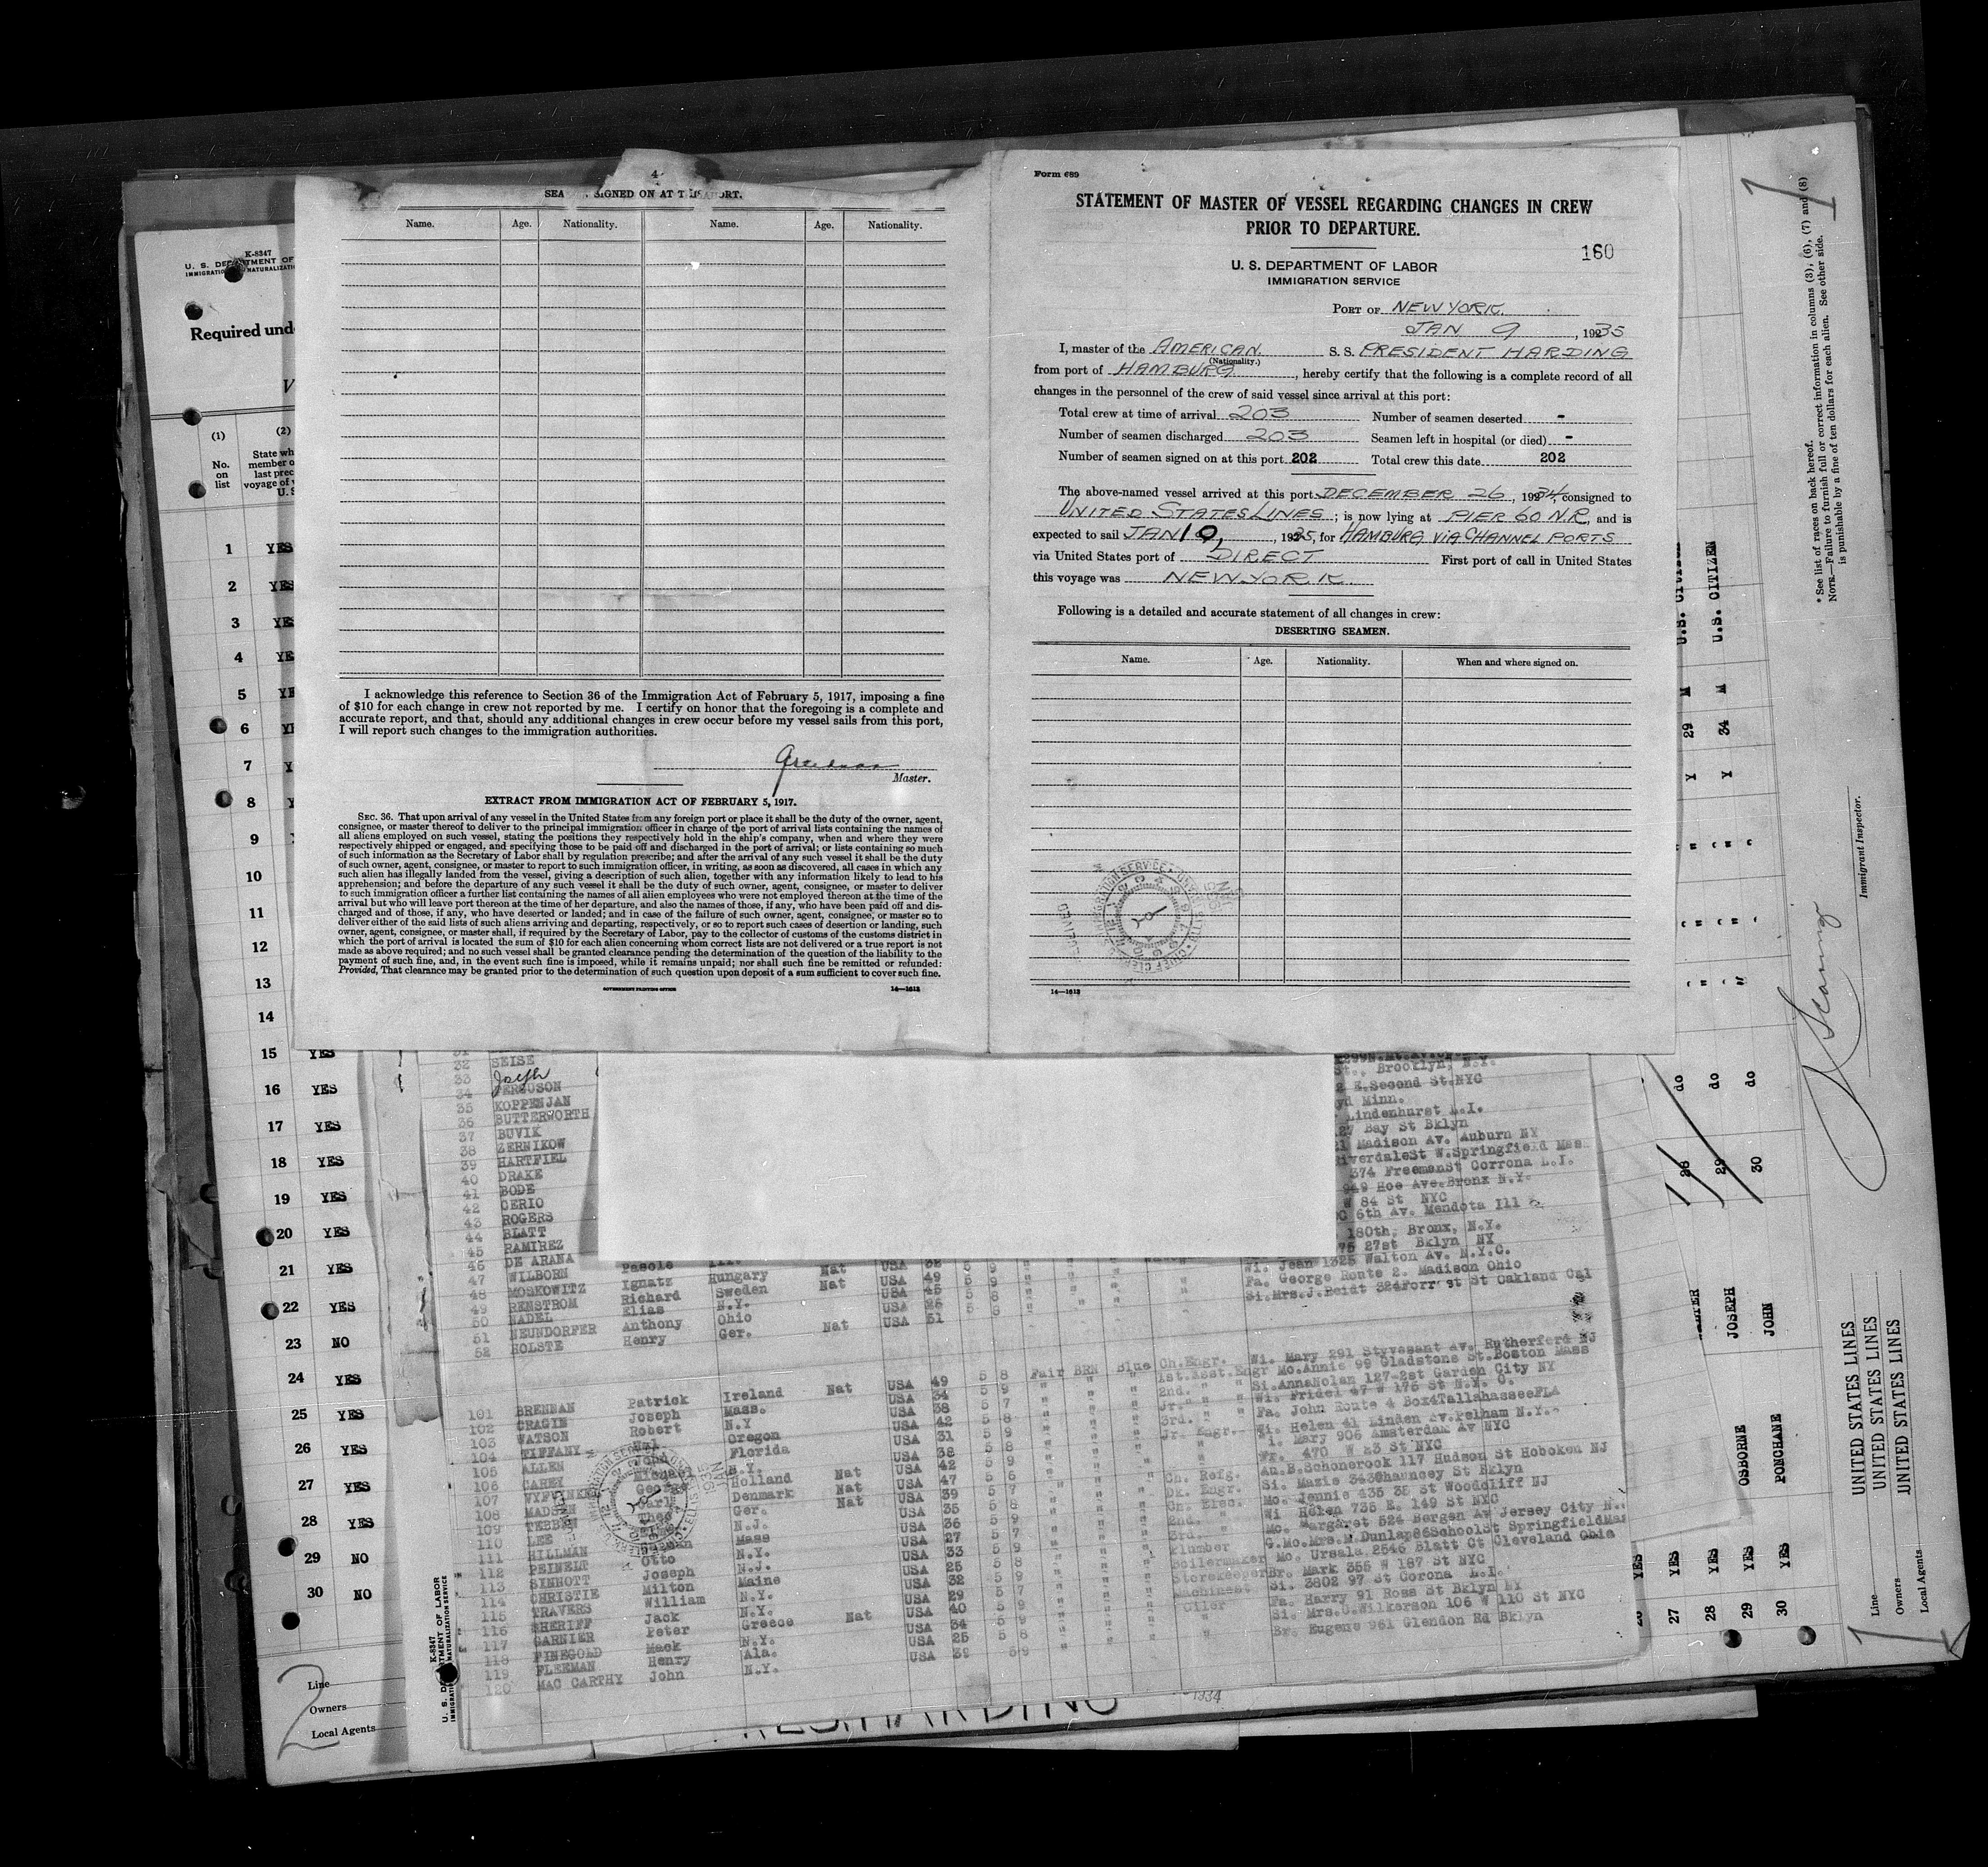 4
SIGNED ON AT
Name. Age. Nationality. Name. Age. Nationality.
I acknowledge this reference to Section 36 of the Immigration Act of February 5, 1917, imposing a fine
of $10 for each change in crew not reported by me. I certify on honor that the foregoing is a complete and
accurate report, and that, should any additional changes in crew occur before my vessel sails from this port,
I will report such changes to the immigration authorities.
Master.
EXTRACT FROM IMMIGRATION ACT OF FEBRUARY 5, 1917.
SEC. 36. That upon arrival of any vessel in the United States from any foreign port or place it shall be the duty of the owner, agent,
consignee, or master thereof to deliver to the principal immigration officer in charge of the port of arrival lists containing the names of
all aliens employed on such vessel, stating the positions they respectively hold in the ship's company, when and where they were
respectively shipped or engaged, and specifying those to be paid off and discharged in the port of arrival; or lists containing so much
of such information as the Secretary of Labor shall by regulation prescribe; and after the arrival of any such vessel it shall be the duty
of such owner, agent, consignee, or master to report to such immigration officer, in writing, as soon as discovered, all cases in which any
such alien has illegally landed from the vessel, giving a description of such alien, together with any information likely to lead to his
apprehension; and before the departure of any such vessel it shall be the duty of such owner, agent, consignee, or master to deliver
to such immigration officer a further list containing the names of all alien employees who were not employed thereon at the time of the
arrival but who will leave port thereon at the time of her departure, and also the names of those, if any, who have been paid off and dis-
charged and of those, if any, who have deserted or landed; and in case of the failure of such owner, agent, consignee, or master so to
deliver either of the said lists of such aliens arriving and departing, respectively, or so to report such cases of desertion or landing, such
owner, agent, consignee, or master shall, if required by the Secretary of Labor, pay to the collector of customs of the customs district in
which the port of arrival is located the sum of $10 for each alien concerning whom correct lists are not delivered or a true report is not
made as above required; and no such vessel shall be granted clearance pending the determination of the question of the liability to the
payment of such fine, and, in the event such fine is imposed, while it remains unpaid; nor shall such fine be remitted or refunded:
Provided, That clearance may be granted prior to the determination of such question upon deposit of a sum sufficient to cover such fine.
GOVERNMENT PRINTING OFFICE 14—1613
Form 689
STATEMENT OF MASTER OF VESSEL REGARDING CHANGES IN CREW
PRIOR TO DEPARTURE.
160
U. S. DEPARTMENT OF LABOR
IMMIGRATION SERVICE
PORT OF NEW YORK.
JAN 9, 1935
I, master of the AMERICAN. S. S. PRESIDENT HARDING
(Nationality.)
from port of HAMBURG, hereby certify that the following is a complete record of all
changes in the personnel of the crew of said vessel since arrival at this port:
Total crew at time of arrival 203 Number of seamen deserted -
Number of seamen discharged 203 Seamen left in hospital (or died) -
Number of seamen signed on at this port 202 Total crew this date 202
The above-named vessel arrived at this port DECEMBER 26, 1934, consigned to
UNITED STATES LINES; is now lying at PIER 60 N.R, and is
expected to sail JAN 10, 1935, for HAMBURG VIA CHANNEL PORTS
via United States port of DIRECT First port of call in United States
this voyage was NEW YORK.
Following is a detailed and accurate statement of all changes in crew:
DESERTING SEAMEN.
Name. Age. Nationality. When and where signed on.
14—1613
K-8347
U. S. DEPARTMENT OF
IMMIGRATION NATURALIZATION
Required und
(1) (2)
No. on list
State wh
member o
last prec
voyage of
U. S
1 YES
2 YES
3 YES
4 YE
5 YE
6 YE
7 Y
8 Y
9
10
11
12
13
14
15 YES
16 YES
17 YES
18 YES
19 YES
20 YES
21 YES
22 YES
23 NO
24 YES
25 YES
26 YES
27 YES
28 YES
29 NO
30 NO
Line
Owners
Local Agents
2
32 SEISE
33 Joseph
34 FERGUSON
35 KOPPENJAN
36 BUTTERWORTH
37 BUVIK
38 ZERNIKOW
39 HARTFIEL
40 DRAKE
41 BODE
42 CERIO
43 ROGERS
44 BLATT
45 RAMIREZ
46 DE ARANA
47 WILBORN
48 MOSKOWITZ Ignatz Hungary Nat USA 49
49 RENSTROM Richard Sweden Nat USA 45
50 NADEL Elias N.Y. USA 26
51 NEUNDORFER Anthony Ohio USA 51
52 HOLSTE Henry Ger. Nat
St., Brooklyn, N.Y.
E.Second St.NYC
Minn.
Lindenhurst L.I.
Bay St Bklyn
Madison Av. Auburn NY
RiverdaleSt W.Springfield Mas
374 FreemanSt Corrona L.I.
949 Hoe Ave.Bronx N.Y.
W 84 St NYC
6th Av. Mendota Ill
180th, Bronx, N.Y.
75 27st Bklyn NY
Wi. Jean 1325 Walton Av. N.Y.C.
Fa. George Route 2. Madison Ohio
Si.Mrs.J.Beidt 324Forrest St Oakland Cal
101 BRENNAN Patrick Ireland Nat USA 49 5 8 Fair BRN Blue Ch.Engr. Wi. Mary 291 Styvesant Av. Rutherford NJ
102 CRAGIN Joseph Mass. USA 34 5 9 1st.Asst.Engr Mo.Annie 99 Gladstone St.Boston Mass
103 WATSON Robert N.Y USA 38 5 7 2nd. Si.AnnaNolan 127-2st Garden City NY
104 TIFFANY Oregon USA 42 5 8 Jr. Wi. Fridel 47 W 175 St N.Y. C.
105 ALLEN John Florida USA 31 5 9 3rd. Fa. John Route 4 Box4TallahasseeFLA
106 CAREY Michael N.Y. USA 38 5 8 Jr. Engr. Wi. Helen 41 Linden Av.Pelham N.Y.
107 George Holland Nat USA 42 5 9 Mary 906 Amsterdam Av NYC
108 MADSEN Carl Denmark Nat USA 47 5 6 470 W 23 St NYC
109 TEBBEN Theo Ger. Nat USA 39 5 7 Ch. Refg. An.B.Schonerock 117 Hudson St Hoboken NJ
110 LEE N.J. USA 35 5 8 Dk. Engr. Si. Mazie 343Chauncey St Bklyn
111 HILLMAN Mass USA 36 5 9 Ch. Elec. Mo. Jennie 435 38 St Woodcliff NJ
112 PEINELT Otto N.Y. USA 27 5 7 2nd. Wi Helen 735 E. 149 St NYC
113 SINNOTT Joseph N.J. USA 33 5 9 3rd. Mo. Margaret 524 Bergen Av Jersey City N.
114 CHRISTIE Milton Maine USA 25 5 8 Plumber G.Mo.Mrs.M.Dunlap86SchoolSt SpringfieldMas
115 TRAVERS William N.Y. USA 32 5 9 Boilermaker Mo. Ursala 2546 Blatt Ct Cleveland Ohio
116 SHERIFF Jack N.Y. USA 29 5 7 Storekeeper Br. Mark 355 W 187 St NYC
117 GARNIER Peter Greece Nat USA 40 5 9 Machinest Si. 3802 97 St Corona L.I.
118 FINEGOLD Mack N.Y. USA 34 5 9 Oiler Fa. Harry 91 Ross St Bklyn NY
119 FLEEMAN Henry Ala. USA 25 5 8 Si. Mrs.C.Wilkerson 106 W 110 St NYC
120 MAC CARTHY John N.Y. USA 39 5 9 Br. Eugene 961 Glendon Rd Bklyn
K-8347
* See list of races on back hereof.
NOTE.—Failure to furnish full or correct information in columns (3), (6), (7) and (8)
is punishable by a fine of ten dollars for each alien. See other side.
Immigrant Inspector.
U.S. Citizen
U.S. CITIZEN
29 M
34 M
do do do
28 29 30
JOSEPH
JOHN
OSBORNE
PONCHANE
YES
27 YES
28 YES
29 YES
30 YES
Line UNITED STATES LINES
Owners UNITED STATES LINES
Local Agents UNITED STATES LINES